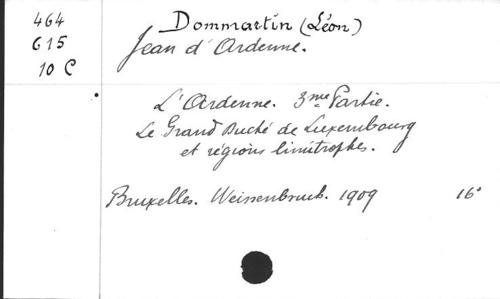 464
G15
10 C
Dommartin (Léon)
Jean d'Ardenne.
L'Ardenne. 3me Partie.
Le Grand Duché de Luxembourg
et régions limitrophes.
Bruxelles. Weissenbruch. 1909 16°